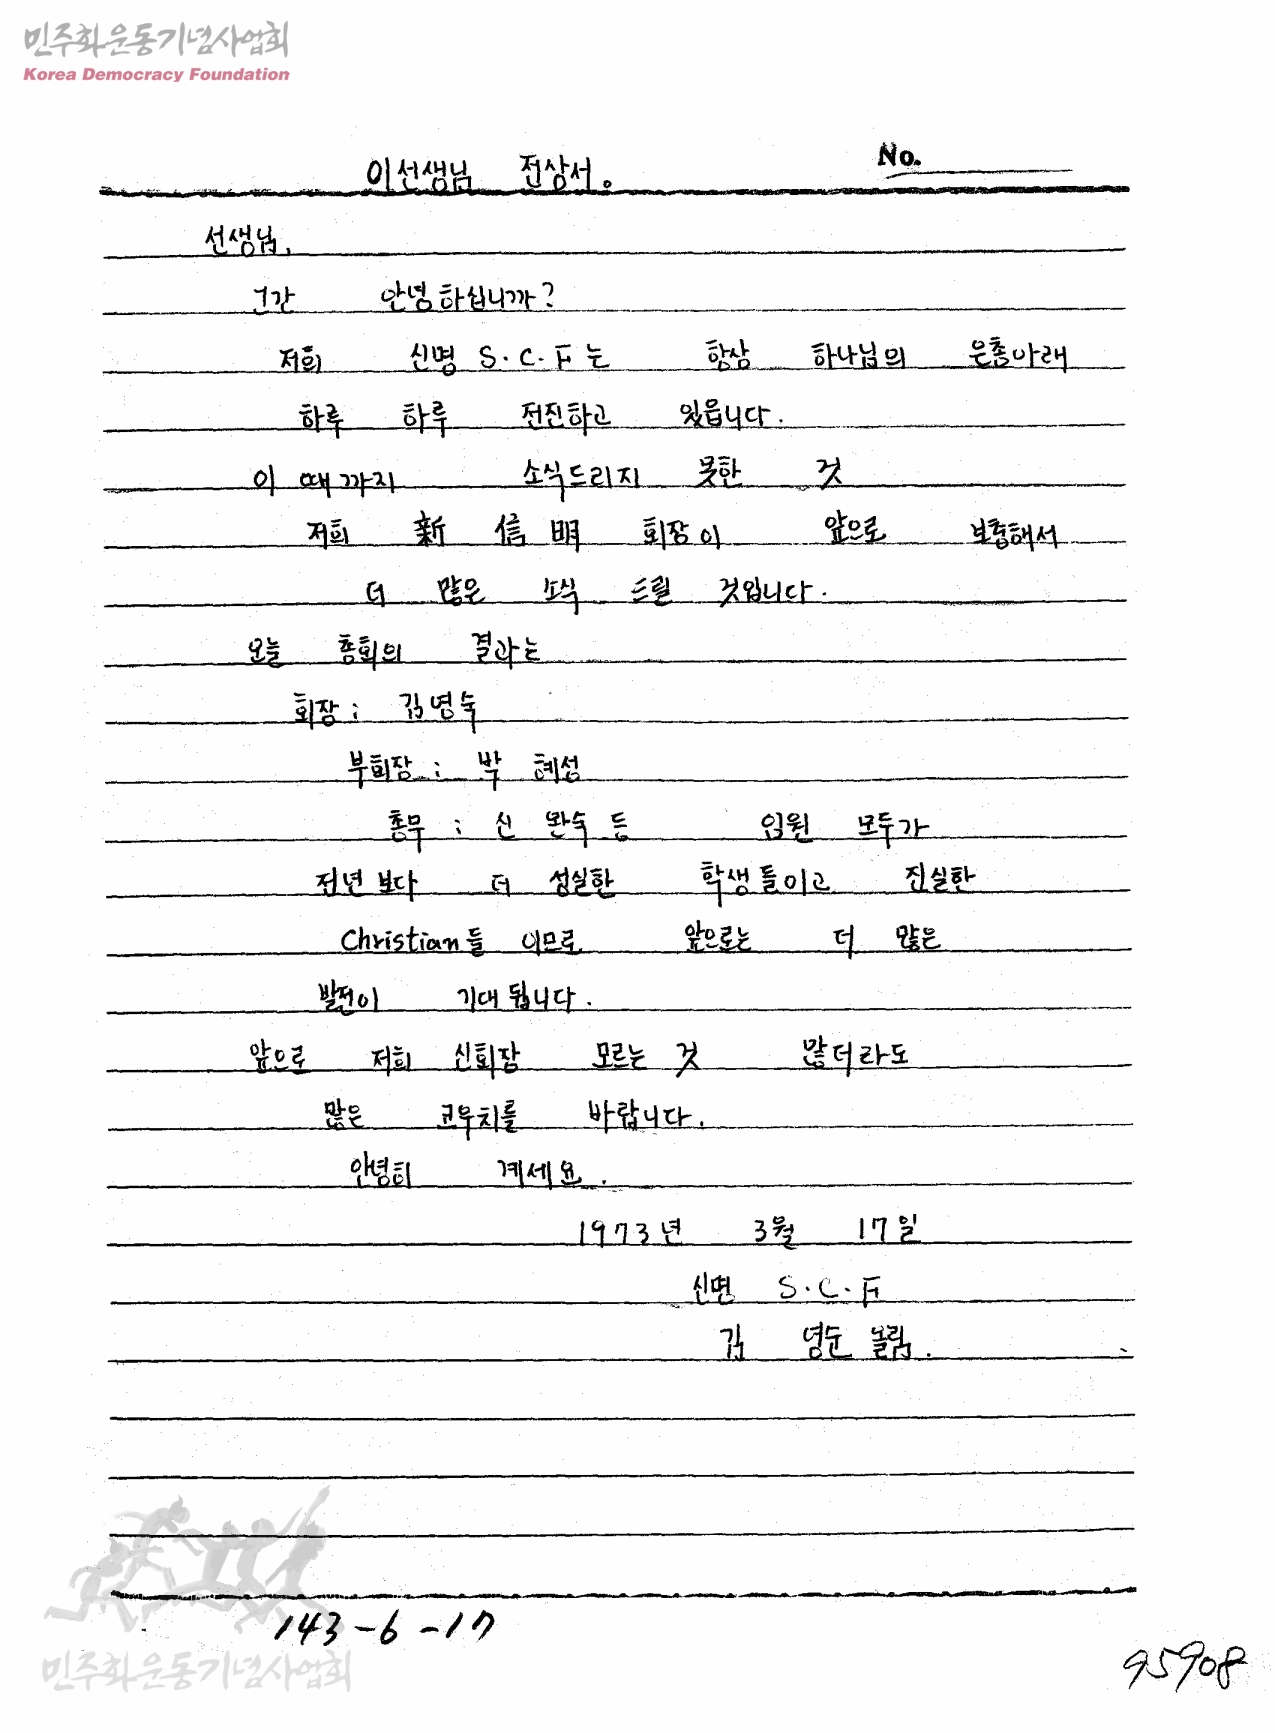 민주화운동기념사업회
Korea Democracy Foundation
이선생님 전상서。
No.
선생님,
그간 안녕하십니까?
저희 신명 S.C.F는 항상 하나님의 은총아래
하루 하루 전진하고 있읍니다.
이 때까지 소식드리지 못한 것
저희 新 信明 회장이 앞으로 보충해서
더 많은 소식 드릴 것입니다.
오늘 총회의 결과는
회장 : 김영숙
부회장 : 박 혜성
총무 : 신 완숙 등 임원 모두가
전년 보다 더 성실한 학생들이고 진실한
Christian들 이므로 앞으로는 더 많은
발전이 기대 됩니다.
앞으로 저희 신회장 모르는 것 많더라도
많은 코우치를 바랍니다.
안녕히 계세요.
1973년 3월 17일
신명 S.C.F
김 영순 올림.
143-6-17
민주화운동기념사업회
95908